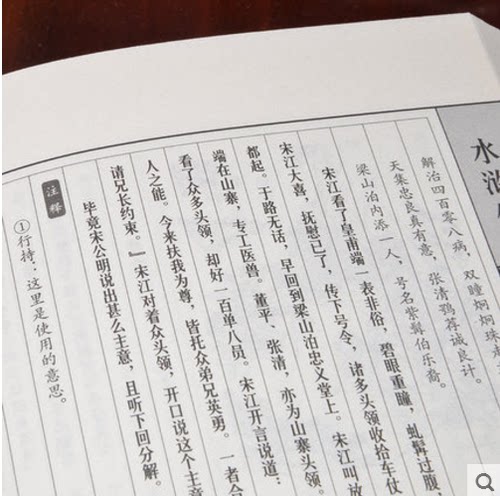 水浒
解治四百零八病，双瞳炯炯珠
天集忠良真有意，张清鹗荐诚良计。
梁山泊内添一人，号名紫髯伯乐裔。
宋江看了皇甫端一表非俗，碧眼重瞳，虬髯过腹
宋江大喜，抚慰已了，传下号令，诸多头领收拾车仗
都起。于路无话，早回到梁山泊忠义堂上。宋江叫放
端在山寨，专工医兽。董平、张清，亦为山寨头领。
看了众多头领，却好一百单八员。宋江开言说道：
人之能。今来扶我为尊，皆托众弟兄英勇。一者合
请兄长约束。』宋江对着众头领，开口说这个主意
毕竟宋公明说出甚么主意，且听下回分解。
注释
①行持：这里是使用的意思。